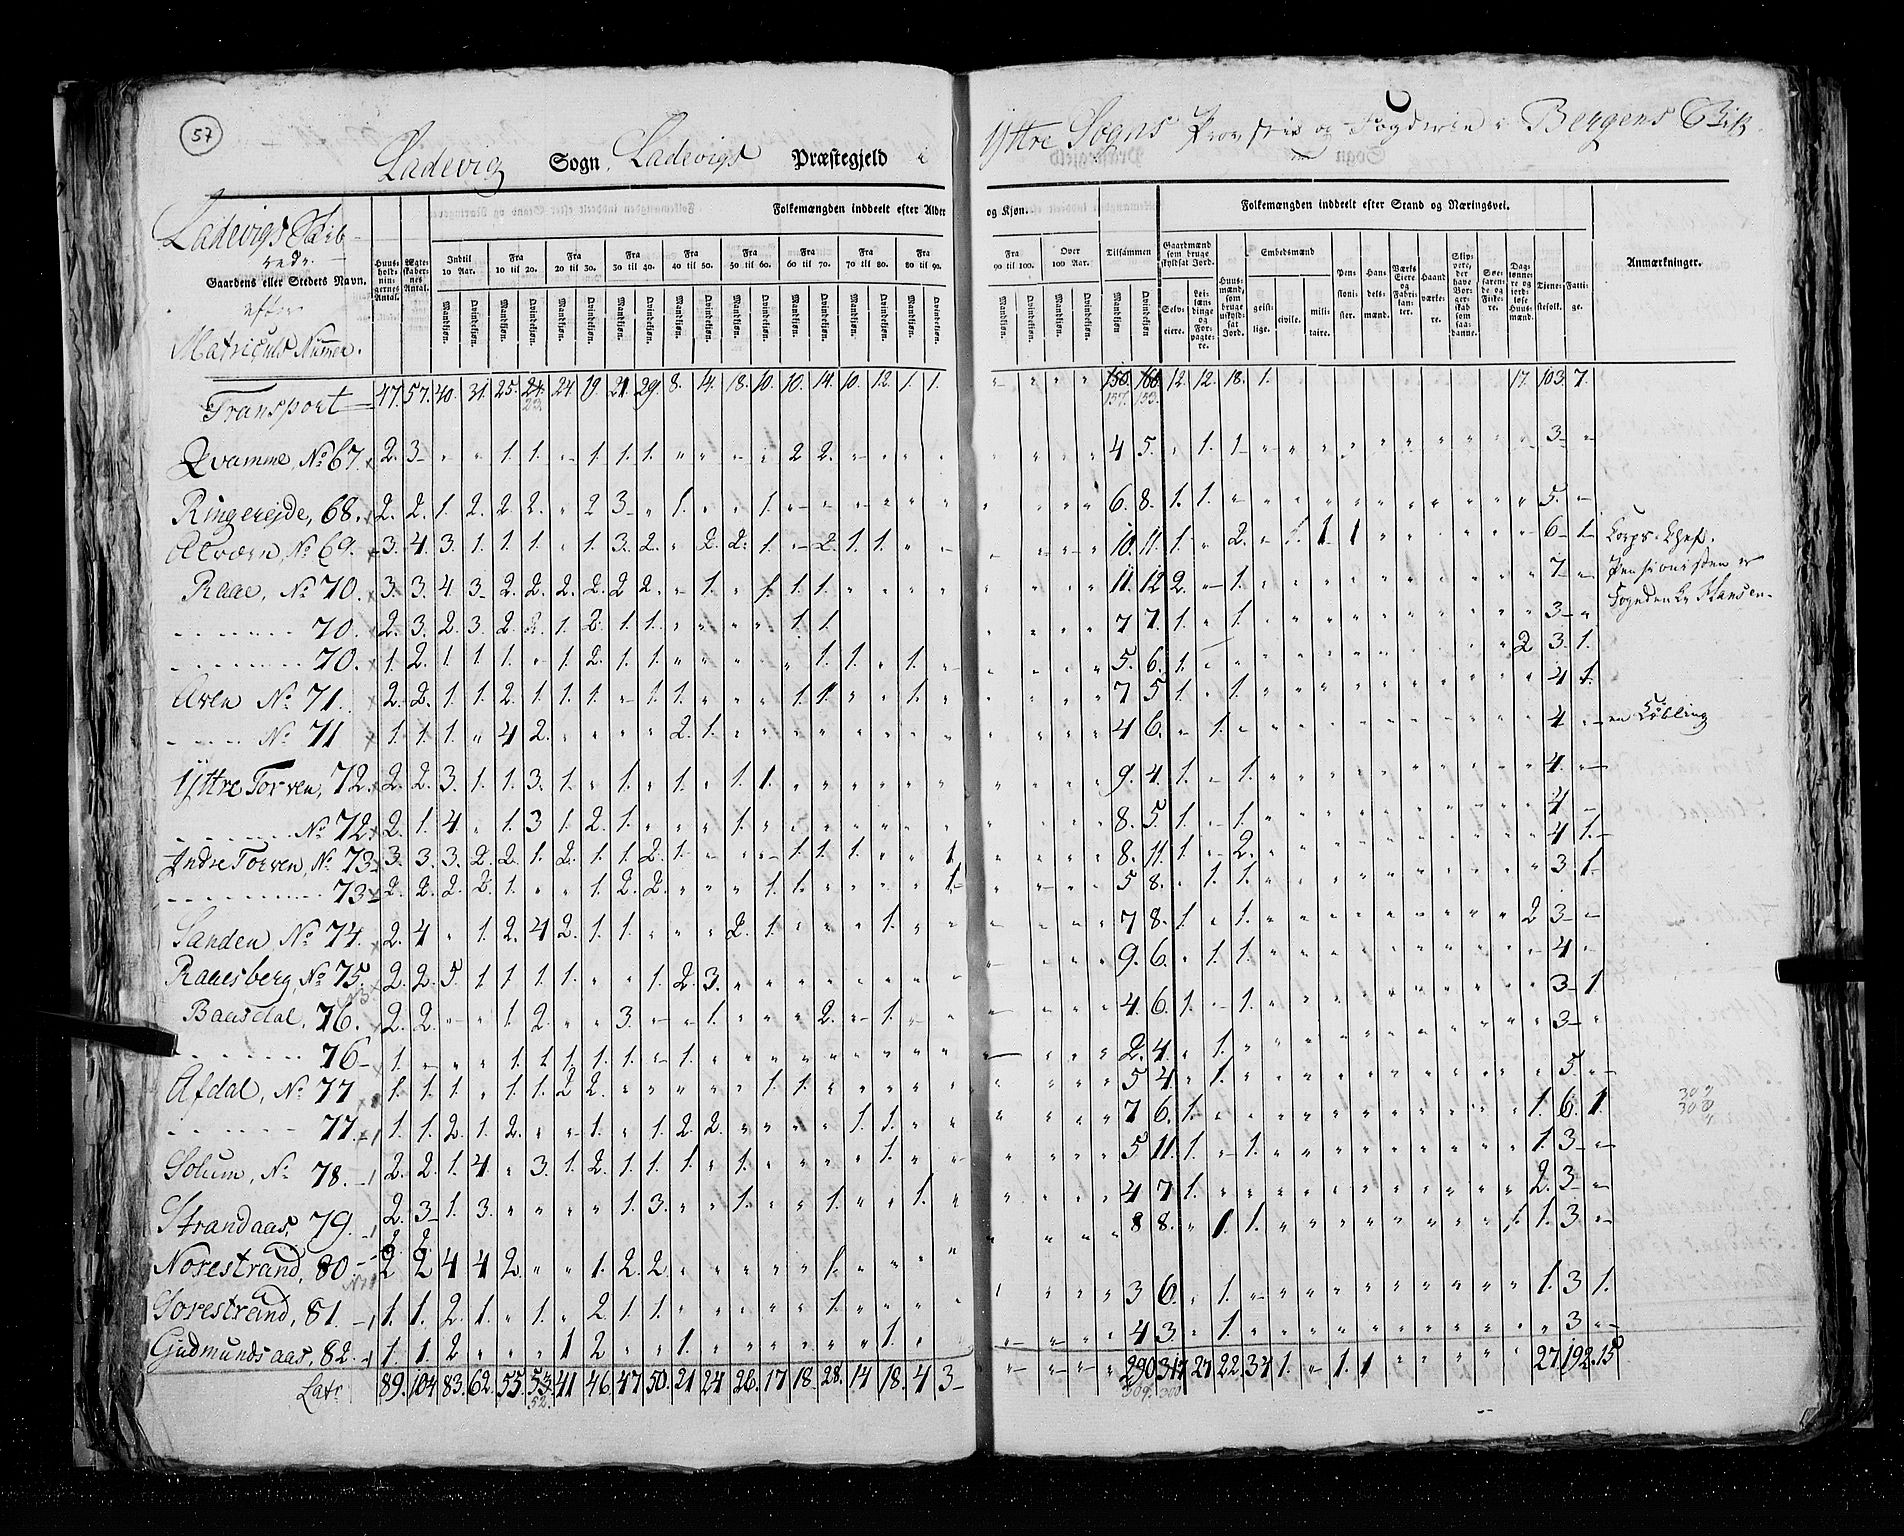 57
Ladevig Sogn, Ladevigs Præstegjeld i Yttre Sogns Provstie og Fogderie i Bergens Bisp
Folkemængden inddeelt efter Alder og Kjøn.
Folkemængden inddeelt efter Stand og Næringsvei.
Ladevigs Skib-
rede.
Gaardens eller Stedets Navn.
efter
Matriculs Nummer.
Huus-holdningernes Antal.
Ægteskabernes Antal.
Indtil 10 Aar.
Fra 10 til 20.
Fra 20 til 30.
Fra 30 til 40.
Fra 40 til 50.
Fra 50 til 60.
Fra 60 til 70.
Fra 70 til 80.
Fra 80 til 90.
Fra 90 til 100.
Over 100 Aar.
Tilsammen
Mandkjøn. Qvindekjøn.
Gaardmænd som bruge skyldsat Jord.
Selv-eiere.
Lei-lændinge og For-pagtere.
Huusmænd, som bruge uskyldsat Jord.
Embedsmænd
geist-lige.
civile.
mili-taire.
Pen-sioni-ster.
Han-dels-mænd.
Værks Eiere og Fabri-kanter.
Haand-værke-re.
Soe-farende og Fiske-re.
Dag-lønnere og jord-løse Huus-mænd.
Tiene-stefolk.
Fatti-ge.
Anmærkninger.
Transport 47. 57. 40. 31. 25. 24. 24 19. 21. 29. 8. 14. 18. 10. 10. 14. 10. 12. 1. 1. 150. 160. 12. 12. 18. 1. 17. 103. 7.
23. 157. 153.
Qvamme, No 67. 2. 3 1. 1. 1. 1. 1. 2 2. 4 5. 1. 1 3
Ringereide, 68. 2. 2. 1. 2. 2. 2. 2 3 1. 1. 6. 8. 1. 1. 5.
Alværn, No 69. 3. 4. 3. 1. 1. 1. 1. 3. 2. 2. 2. 1. 2. 1. 1. 10. 11. 1. 2. 1. 1 1 6 1 Korps-Chef.
Raae, No 70. 3. 3. 4 3 2. 2. 2. 2. 2 2. 1. 1. 1. 1. 11. 12 2. 1. 7 Pensionisten er
70. 2. 3. 2. 3. 2. 2. 1. 2. 1. 1. 1. 1. 7 7. 1. 1. 3 Fogden Hr Hansen.
70. 1. 2. 1. 1. 1. 1. 2. 1. 1. 1. 1. 1. 5. 6. 1. 2 3. 1.
Aren No 71. 2. 2. 1. 1. 2. 1. 1. 1. 1. 1. 1. 1. 1. 7 5 1. 1. 4 1.
No 71 1. 1. 1. 4 2. 2. 1. 4 6. 1. 4
Yttre Torven, 72. 2. 2. 3. 1. 1. 3. 1. 1. 1. 1. 1. 9. 4. 1. 1. 4.
No 72. 2. 1. 4. 1. 3 1. 2. 1. 1. 8. 5. 1. 1. 4
Indre Torven, No 73 3. 3. 3. 2. 2. 1. 2. 1. 1. 2. 1. 1. 1. 1. 1. 8. 11. 1. 2. 4 1.
73 2. 2. 2. 2. 1. 1. 2. 2. 1. 1. 1. 5 8. 1. 1. 3 1
Sanden No 74. 2. 4 1. 2. 4 2. 1. 1. 2. 1. 1. 7 8. 1. 1. 2 3
Raaesberg, No 75. 2. 2. 5. 1 1 1. 1. 1. 2. 3. 9. 6. 1. 1. 4
Baasdal, 76. 2. 2. 1. 2. 3. 1. 2. 1. 4. 6. 1. 1. 3 1
76 1. 1. 1 1. 1. 1. 1. 2. 4. 1. 3
Afdal, No 77 1. 1. 1. 1. 1. 2 2. 1. 1. 5 4. 1. 5.
77. 1. 1. 2. 1. 2. 1. 1. 2. 2. 1. 1. 7 6. 1. 1. 6. 1.
Solum, No 78. 2. 2. 1. 4 3. 1. 2. 1. 1. 1. 1. 1. 5 11. 1. 1. 1. 3
Strandaas, 79. 2. 3 1. 3. 1. 3. 1. 1. 1. 4 7 1. 2. 3
2. 2.
Norestrand, 80 2 2 4 4 2. 1. 2. 2. 1. 8 8. 1 1. 1. 3
Sorestrand, 81. 1. 1. 2. 1. 1. 2. 1. 1. 1. 3 6. 1. 1. 3 1.
Gudmundsaas, 82. 1. 1. 2 1 2. 1. 1. 4 3. 1. 3
Late 89. 104 83. 62. 55. 53. 41 46. 47 50. 21 24 26. 17 18. 28. 14 18. 4 3 290 317 27 22. 34 1. 1. 1 27. 192. 15
52. 309. 300